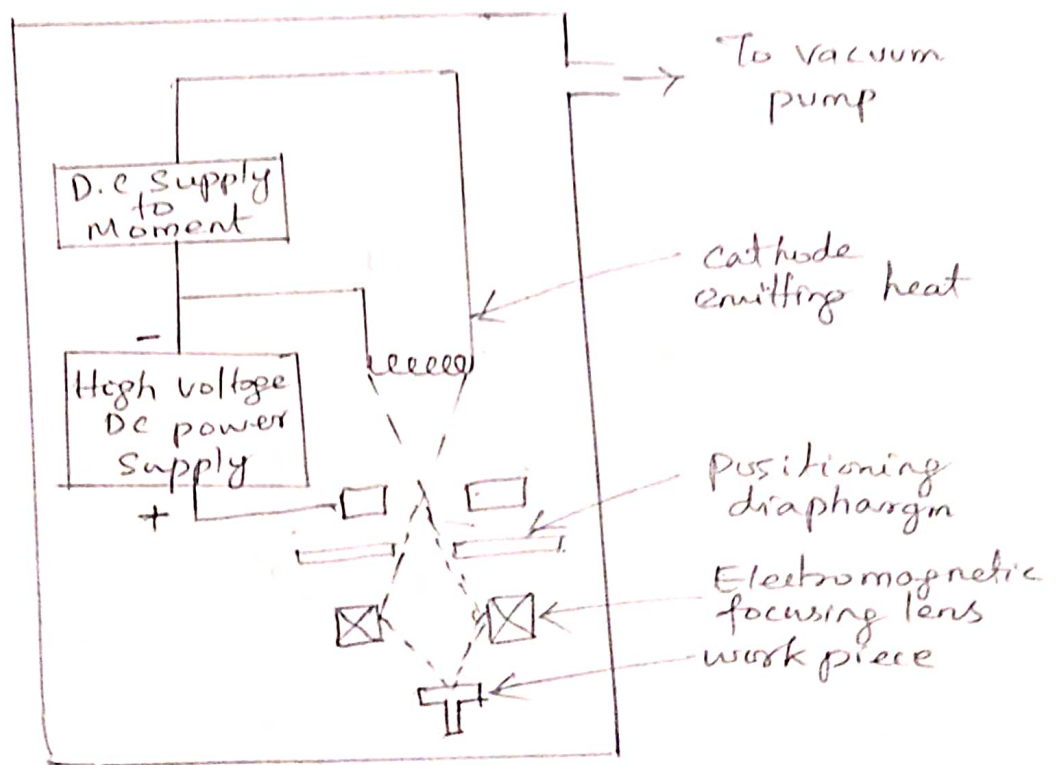 To vacuum
pump
D.C Supply
to
Moment
Cathode
emitting heat
-
High voltage
DC power
Supply
+
Positioning
diaphargm
Electromagnetic
focusing lens
work piece